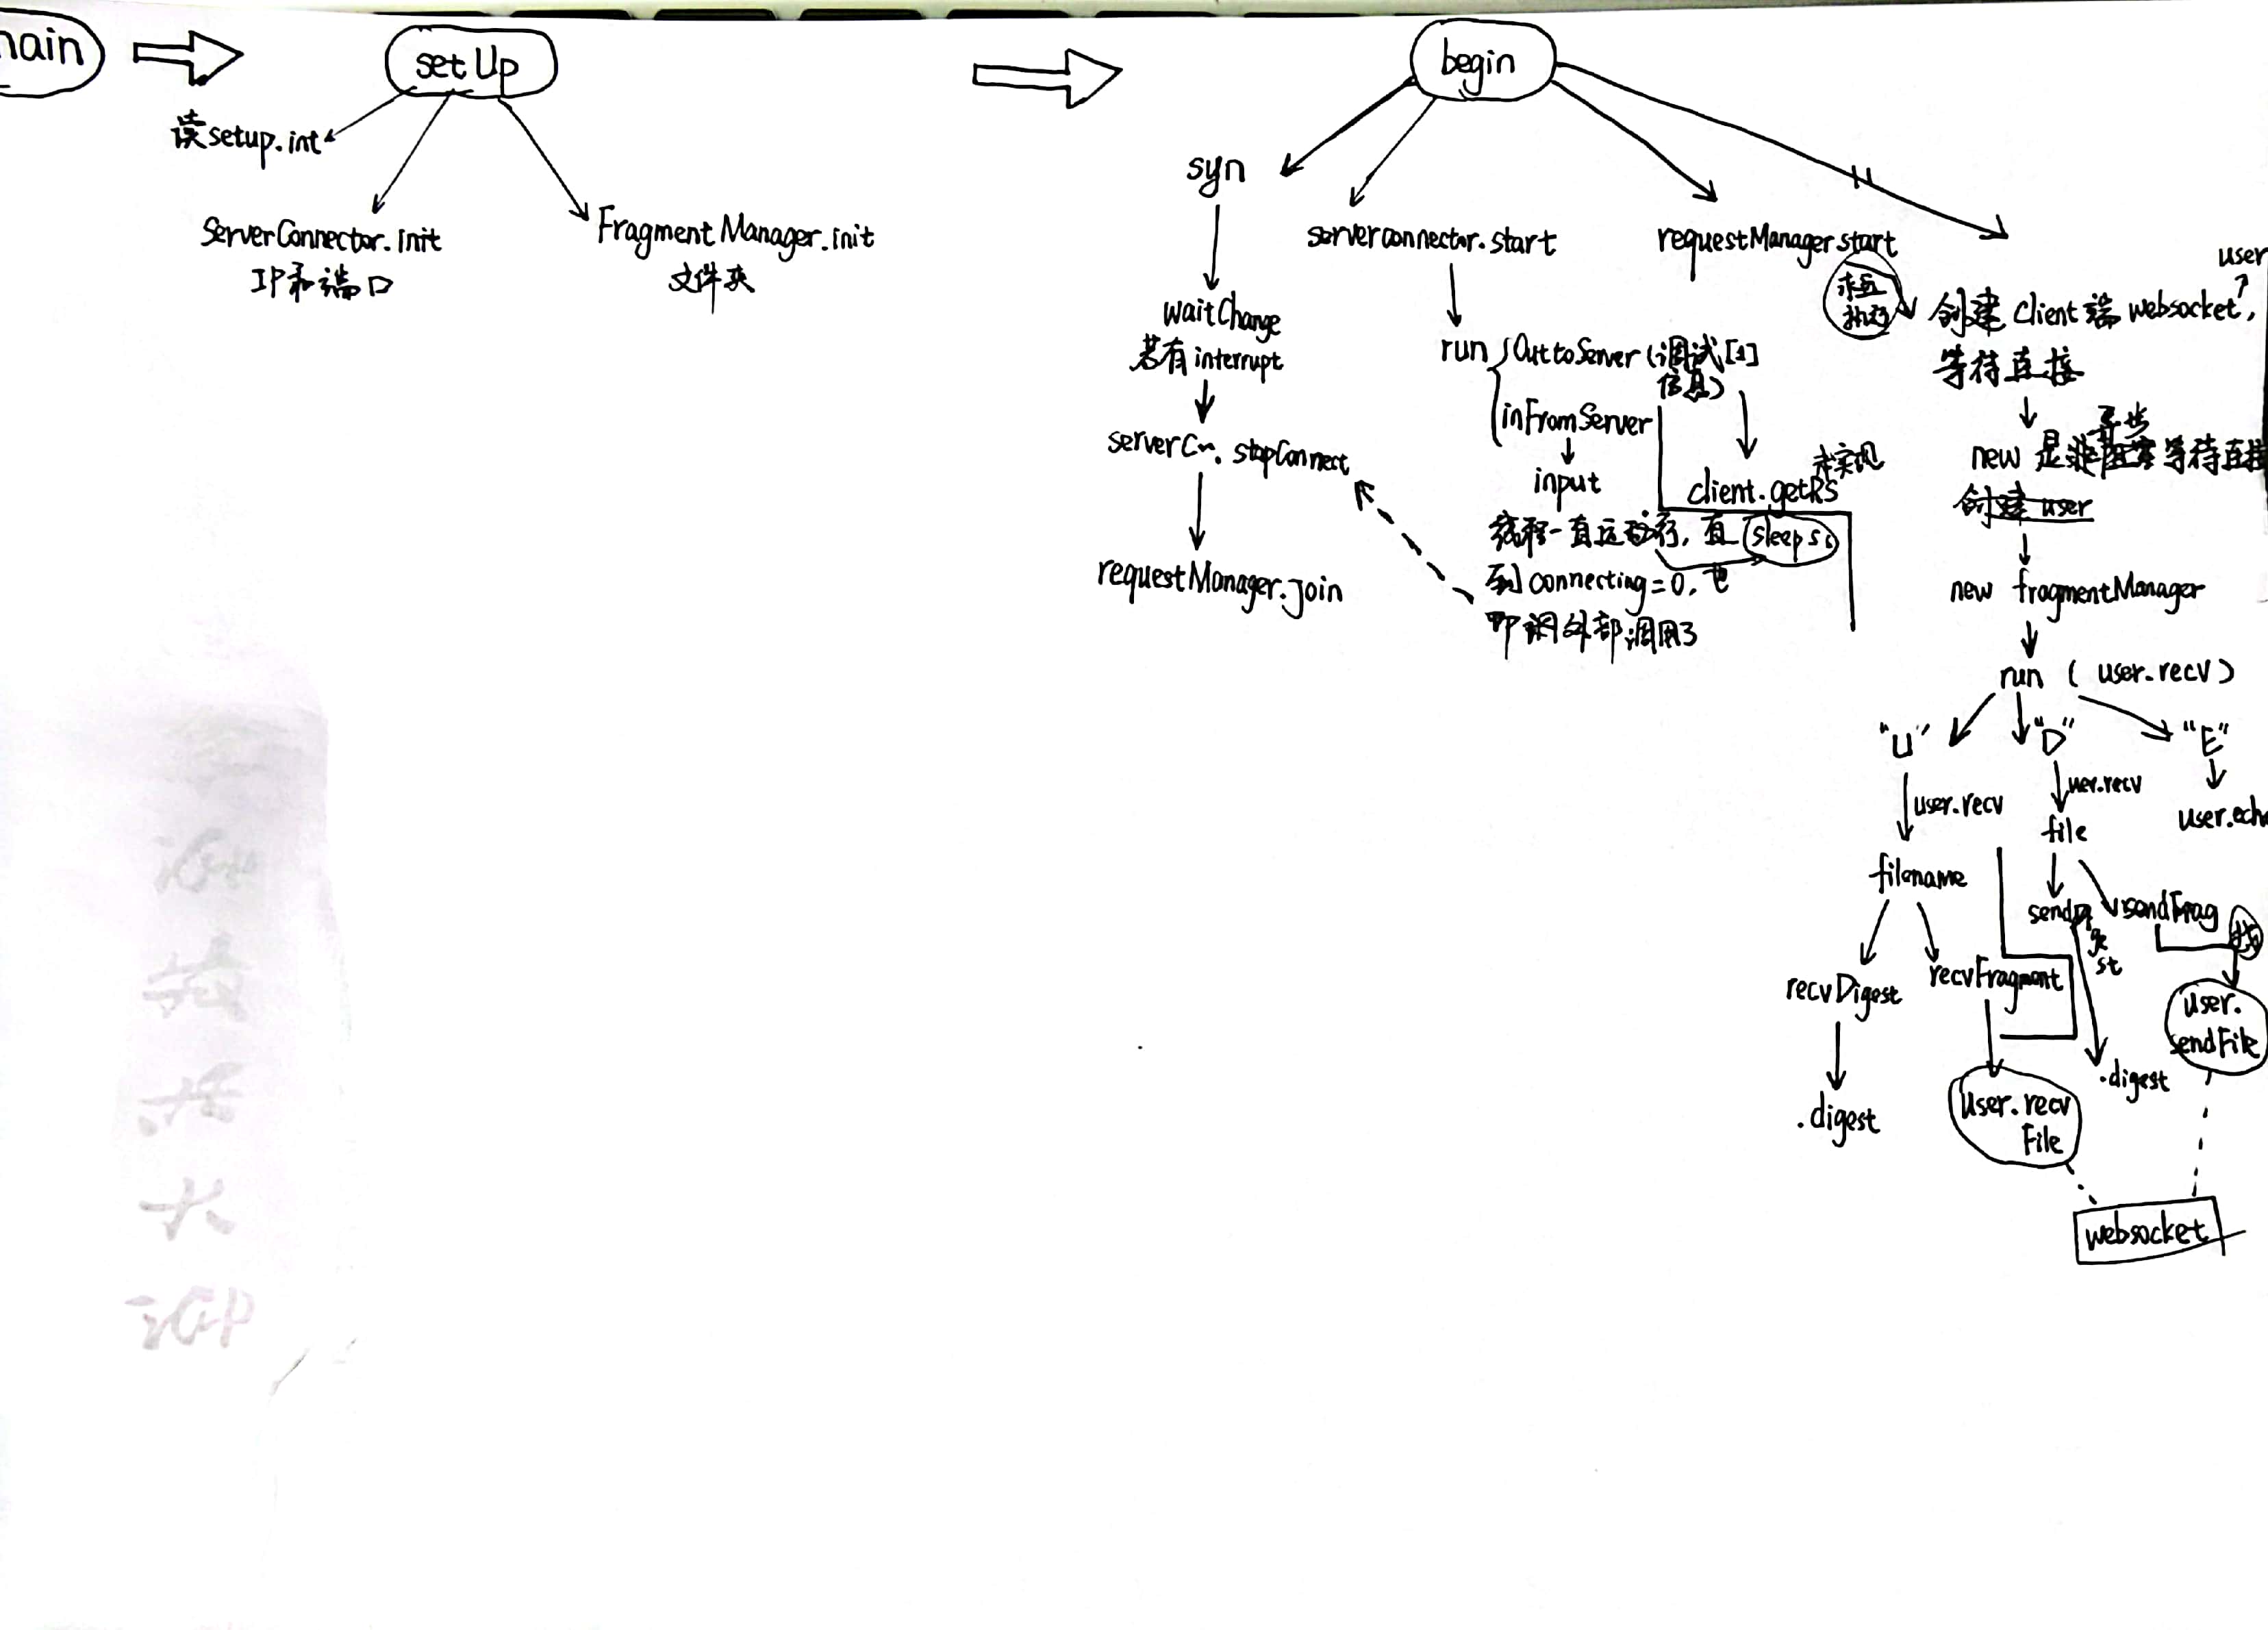 main
setUp
读setup.int
ServerConnector.init
IP和端口
FragmentManager.init
文件夹
begin
syn
waitChange
若有interrupt
serverC~. stopConnect
requestManager.join
serverconnector.start
run
OuttoServer(调试[1]
信息)
inFromServer
input
线程一直运行,直
到connecting=0,也
即调外部调用了
client.getRS
未实现
sleep 5s
requestManager.start
user
创建Client端websocket,
等待直接
new 是非阻塞等待直接
异步
创建user
new fragmentManager
run (user.recv)
"U"
user.recv
filename
recvDigest
.digest
recvFragment
user.recv
File
"D"
user.recv
file
sendDi
ge
st
.digest
sendFrag
user.
sendFile
"E"
user.echo
websocket